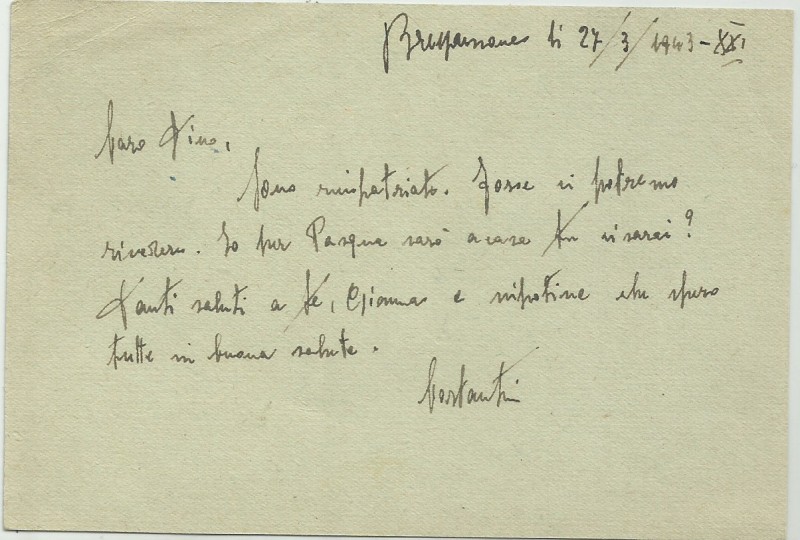 Bressanone li 27/3/1943-XXI
Caro Dino,
Sono rimpatriato. Forse ci potremo
rivedere. Io per Pasqua sarò a casa Tu ci sarai?
Tanti saluti a te, Gianna e nipotine che spero
tutte in buona salute.
Costantin